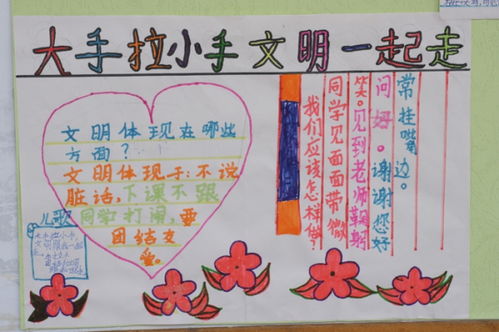 大手拉小手文明一起走
文明体现在哪些
方面？
文明体现于：不说
脏话，下课不跟
同学打闹，要
团结友
爱。
儿歌
大手拉小手
我们应该怎样做？
同学见面面带微
笑。见到老师鞠躬
问好。谢谢您好
常挂嘴边。